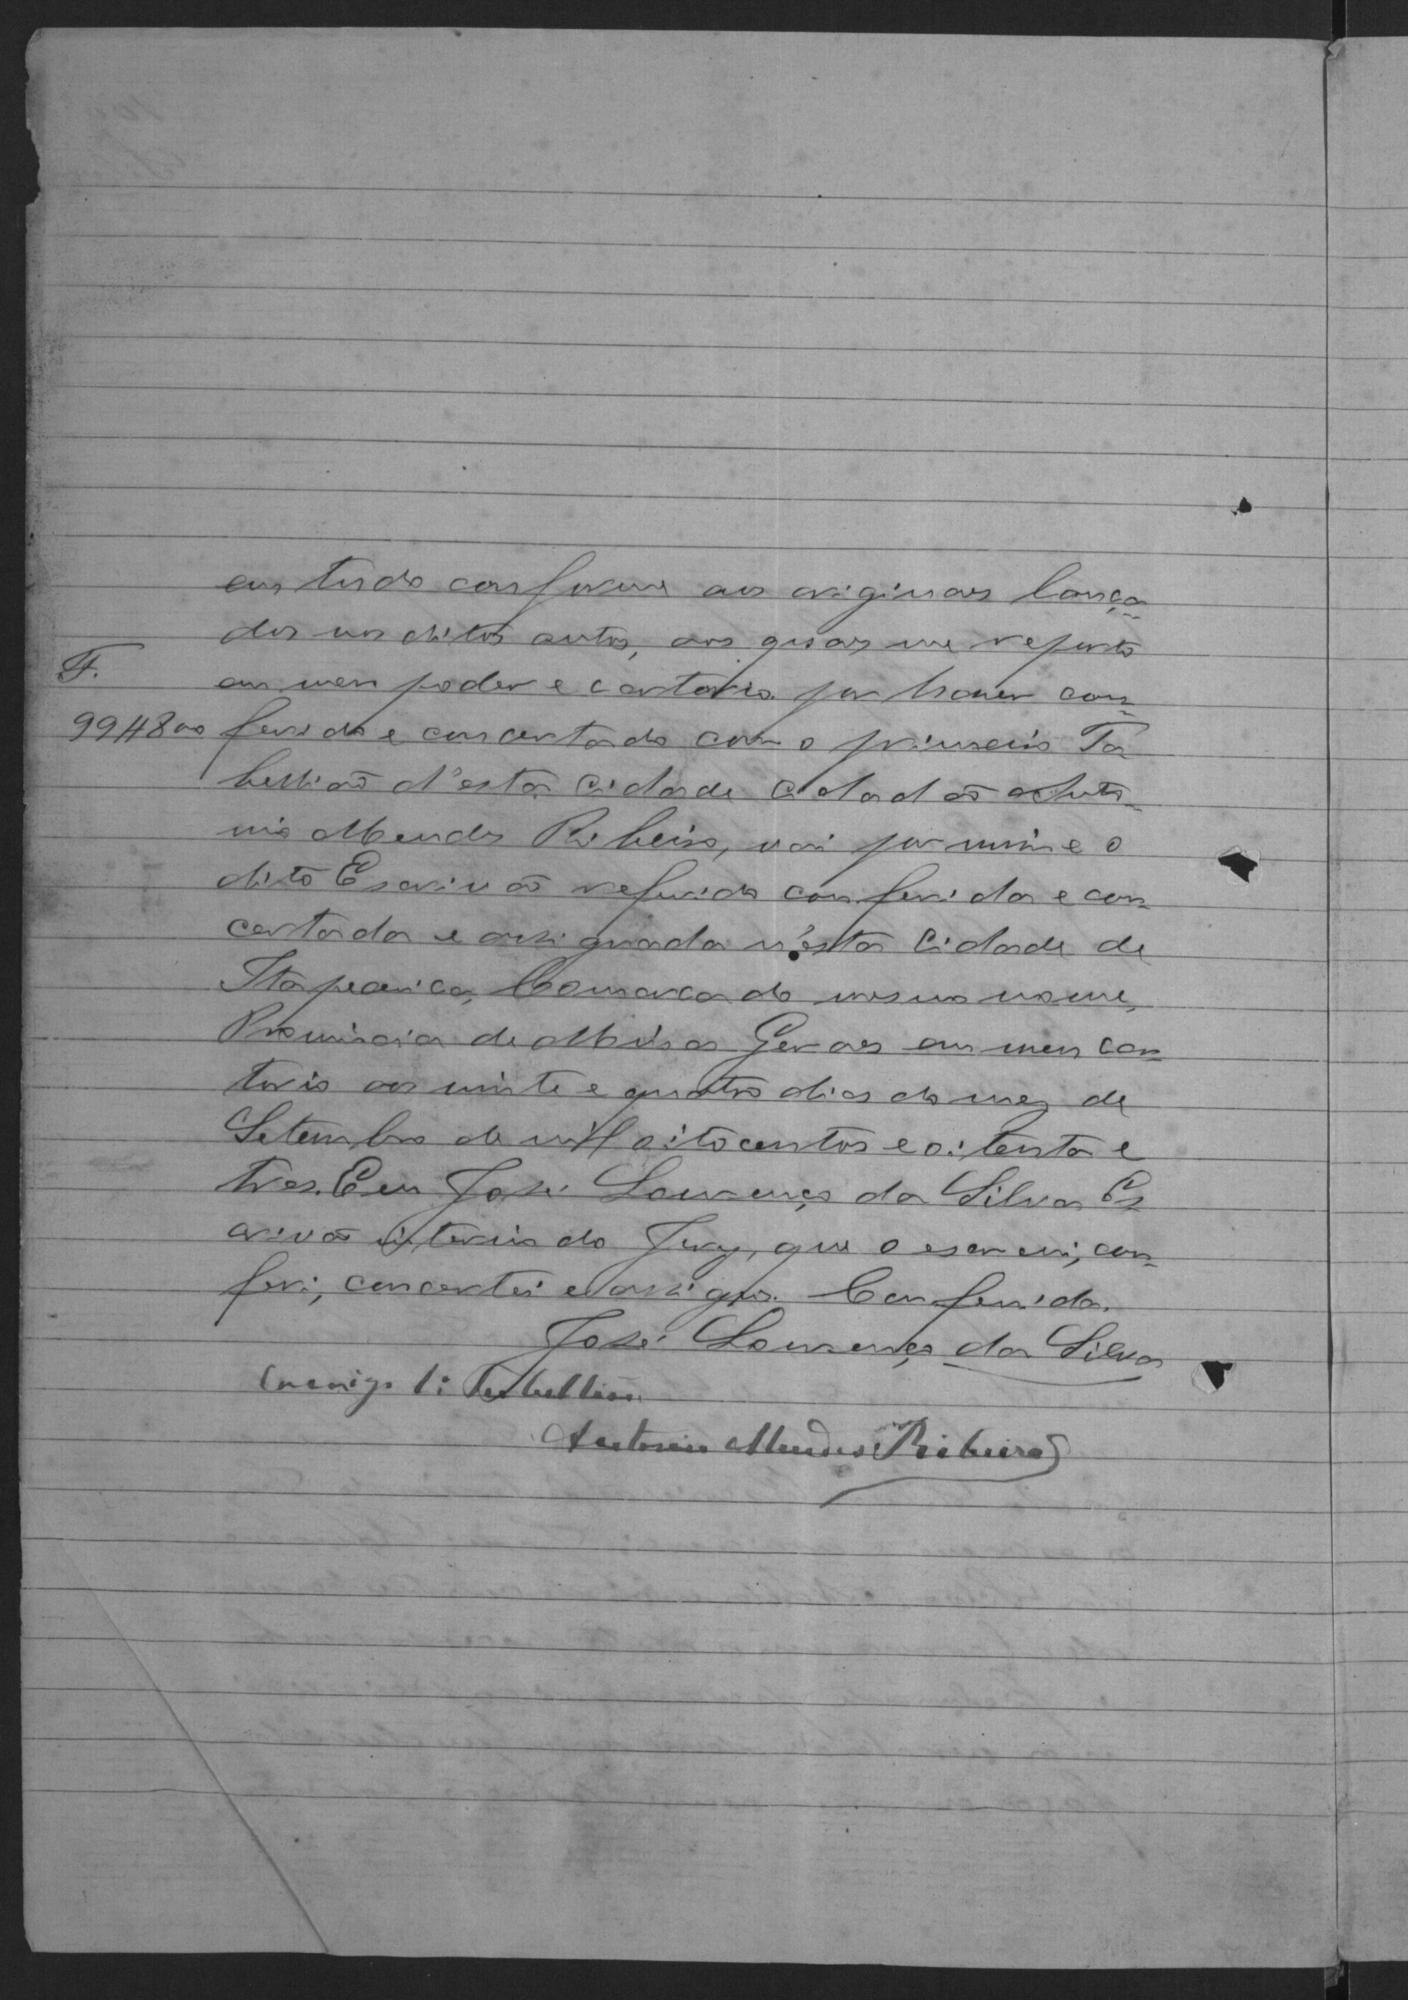 em tudo conforme aos originaes lança-
dos nos ditos autos, aos quaes me reporto
F.
em meu poder e cartorio por haver con-
99#800 ferido e concertado com o primeiro Ta
bellião d'esta Cidade Cidadão Anto-
nio Mendes Ribeiro, vai por mim e o
dito Escrivão referido conferida e con-
certada e assignada n'esta Cidade de
Itapecerica, Comarca do mesmo nome,
Provincia de Minas Geraes em meu car-
torio aos vinte e quatro dias do mez de
Setembro de mil oitocentos e oitenta e
tres. E eu José Lourenço da Silva Es
crivão interino do Jury, que o escrevi, con-
feri, concertei e assigno. Conferida.
José Lourenço da Silva
Comigo 1º Tabellião
Antonio Mendes Ribeiro